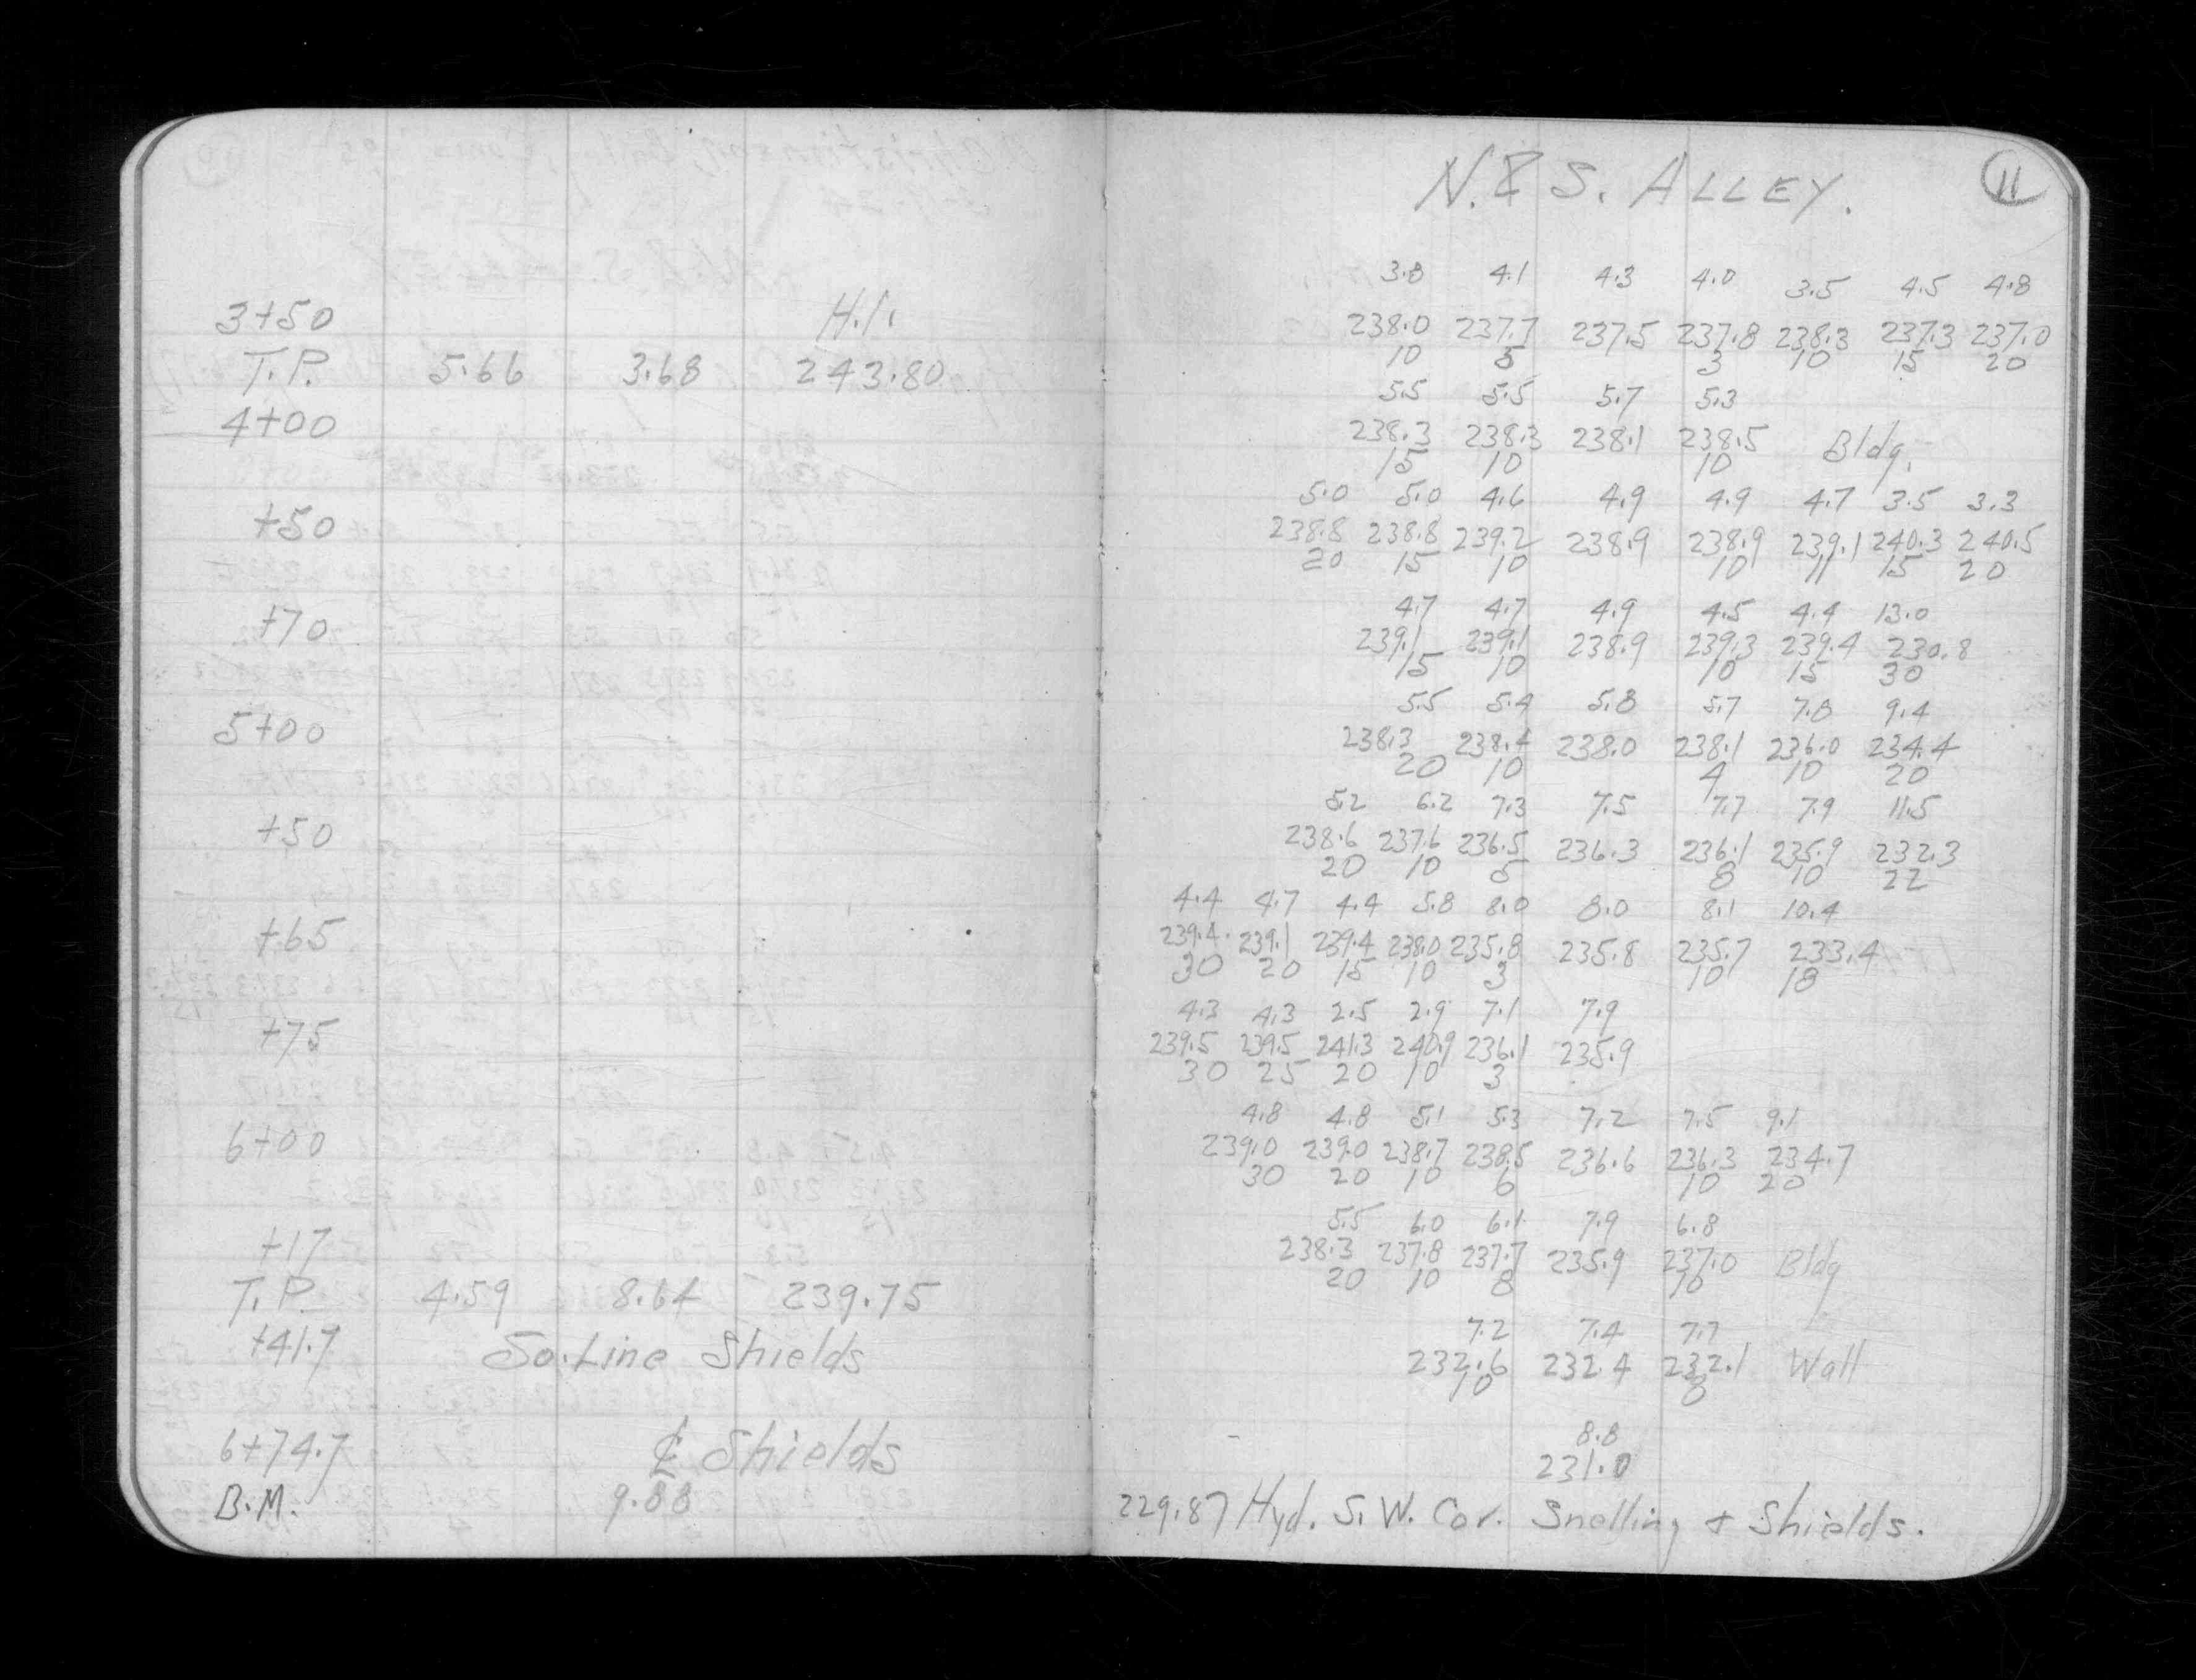 N. & S. ALLEY.
11
3.8 4.1 4.3 4.0 3.5 4.5 4.8
3+50 H.I. 238.0 237.7 237.5 237.8 238.3 237.3 237.0
10 5 3 10 15 20
T.P. 5.66 3.68 243.80
5.5 5.5 5.7 5.3
4+00 238.3 238.3 238.1 238.5 Bldg.
15 10 10
5.0 5.0 4.6 4.9 4.9 4.7 3.5 3.3
+50 238.8 238.8 239.2 238.9 238.9 239.1 240.3 240.5
20 15 10 10 11 15 20
4.7 4.7 4.9 4.5 4.4 13.0
+70 239.1 239.1 238.9 239.3 239.4 230.8
15 10 10 15 30
5.5 5.4 5.8 5.7 7.8 9.4
5+00 238.3 238.4 238.0 238.1 236.0 234.4
20 10 4 10 20
5.2 6.2 7.3 7.5 7.7 7.9 11.5
+50 238.6 237.6 236.5 236.3 236.1 235.9 232.3
20 10 5 8 10 22
4.4 4.7 4.4 5.8 8.0 8.0 8.1 10.4
+65 239.4 239.1 239.4 238.0 235.8 235.8 235.7 233.4
30 20 15 10 3 10 18
4.3 4.3 2.5 2.9 7.1 7.9
+75 239.5 239.5 241.3 240.9 236.1 235.9
30 25 20 10 3
4.8 4.8 5.1 5.3 7.2 7.5 9.1
6+00 239.0 239.0 238.7 238.5 236.6 236.3 234.7
30 20 10 6 10 20
5.5 6.0 6.1 7.9 6.8
+17 238.3 237.8 237.7 235.9 237.0 Bldg
20 10 8 10
T.P. 4.59 8.64 239.75
7.2 7.4 7.7
+41.7 So. Line Shields 232.6 232.4 232.1 Wall
10 8
8.8
6+74.7 ℄ Shields 231.0
B.M. 9.88 229.87 Hyd. S.W. Cor. Snelling + Shields.